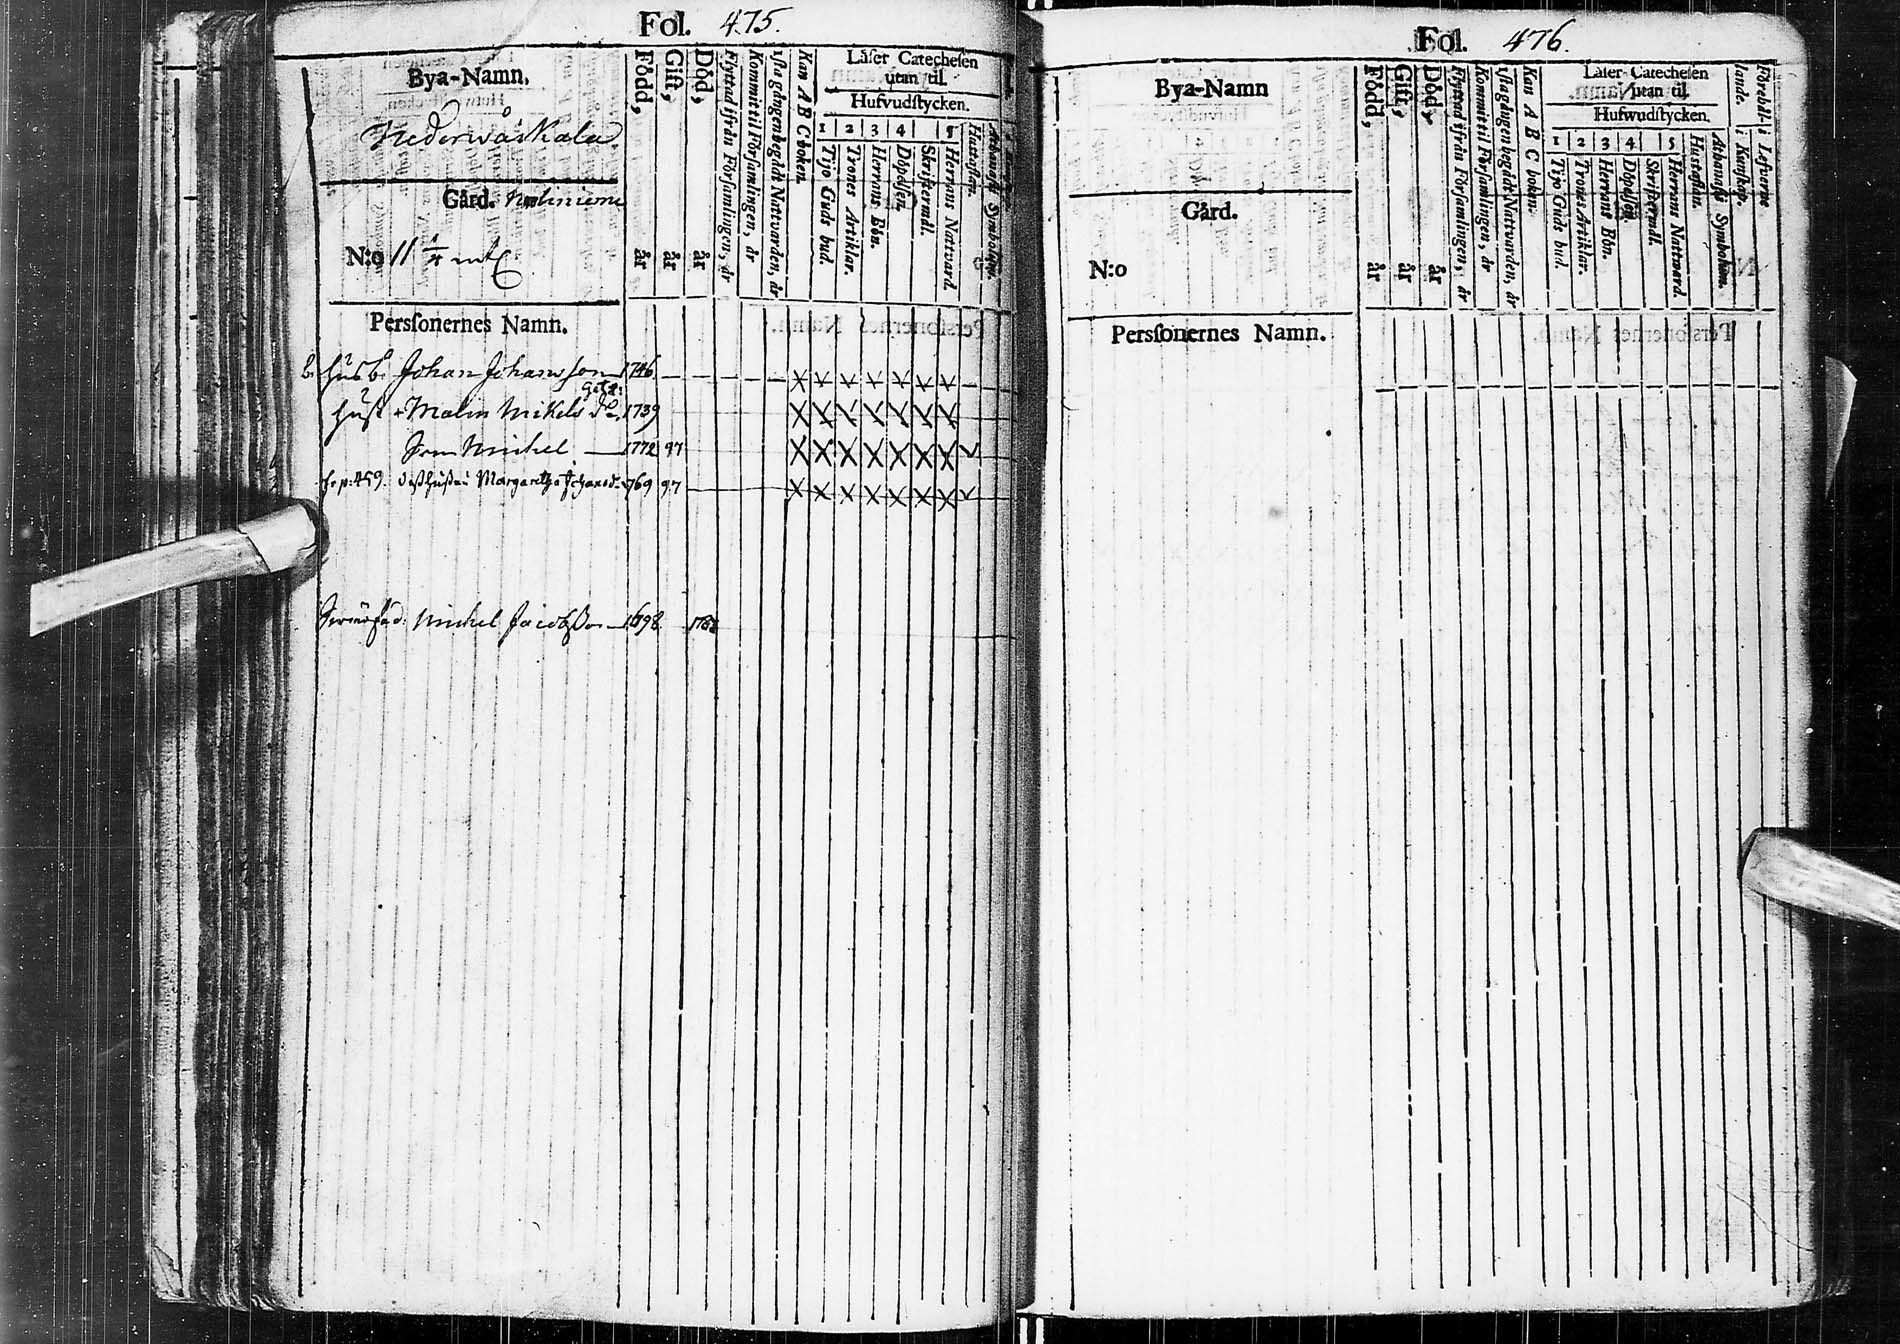 Fol. 475.
Bya-Namn,
Nederwåskala
Gård.
N:o 11
Född, år
Gift, år
Död, år
Flyttad ifrån Församlingen, år
Kommit til Församlingen, år
1sta gången begådt Nattvarden, år
Kan A B C boken.
Läser Catechesen
utan til
Hufvudstycken.
1 2 3 4 5
Tijo Guds bud.
Trones Artiklar.
Herrans Bön.
Döpelsen.
Skriftermål.
Herrans Nattvard.
Hustaflan.
Athanasii Symbolum.
Personernes Namn.
Johan Johansson 1746
Hust Malin Mikels dr. 1739
Son Michel 1772 97
fr p: 459. Margaretha Johansd. 769 97
Michel Jacobsson 1698
Fol. 476.
Bya-Namn
Gård.
N:o
Född, år
Gift, år
Död, år
Flyttad ifrån Församlingen, år
Kommit til Församlingen, år
1sta gången begådt Nattvarden, år
Kan A B C boken.
Läser Catechesen
utan til
Hufwudstycken.
1 2 3 4 5
Tijo Guds bud.
Trones Artiklar.
Herrans Bön.
Döpelsen.
Skriftermål.
Herrans Nattward.
Hustaflan.
Athanasii Symbolum.
lande. i Kunskap.
Förebll- i Lefverne
Personernes Namn.